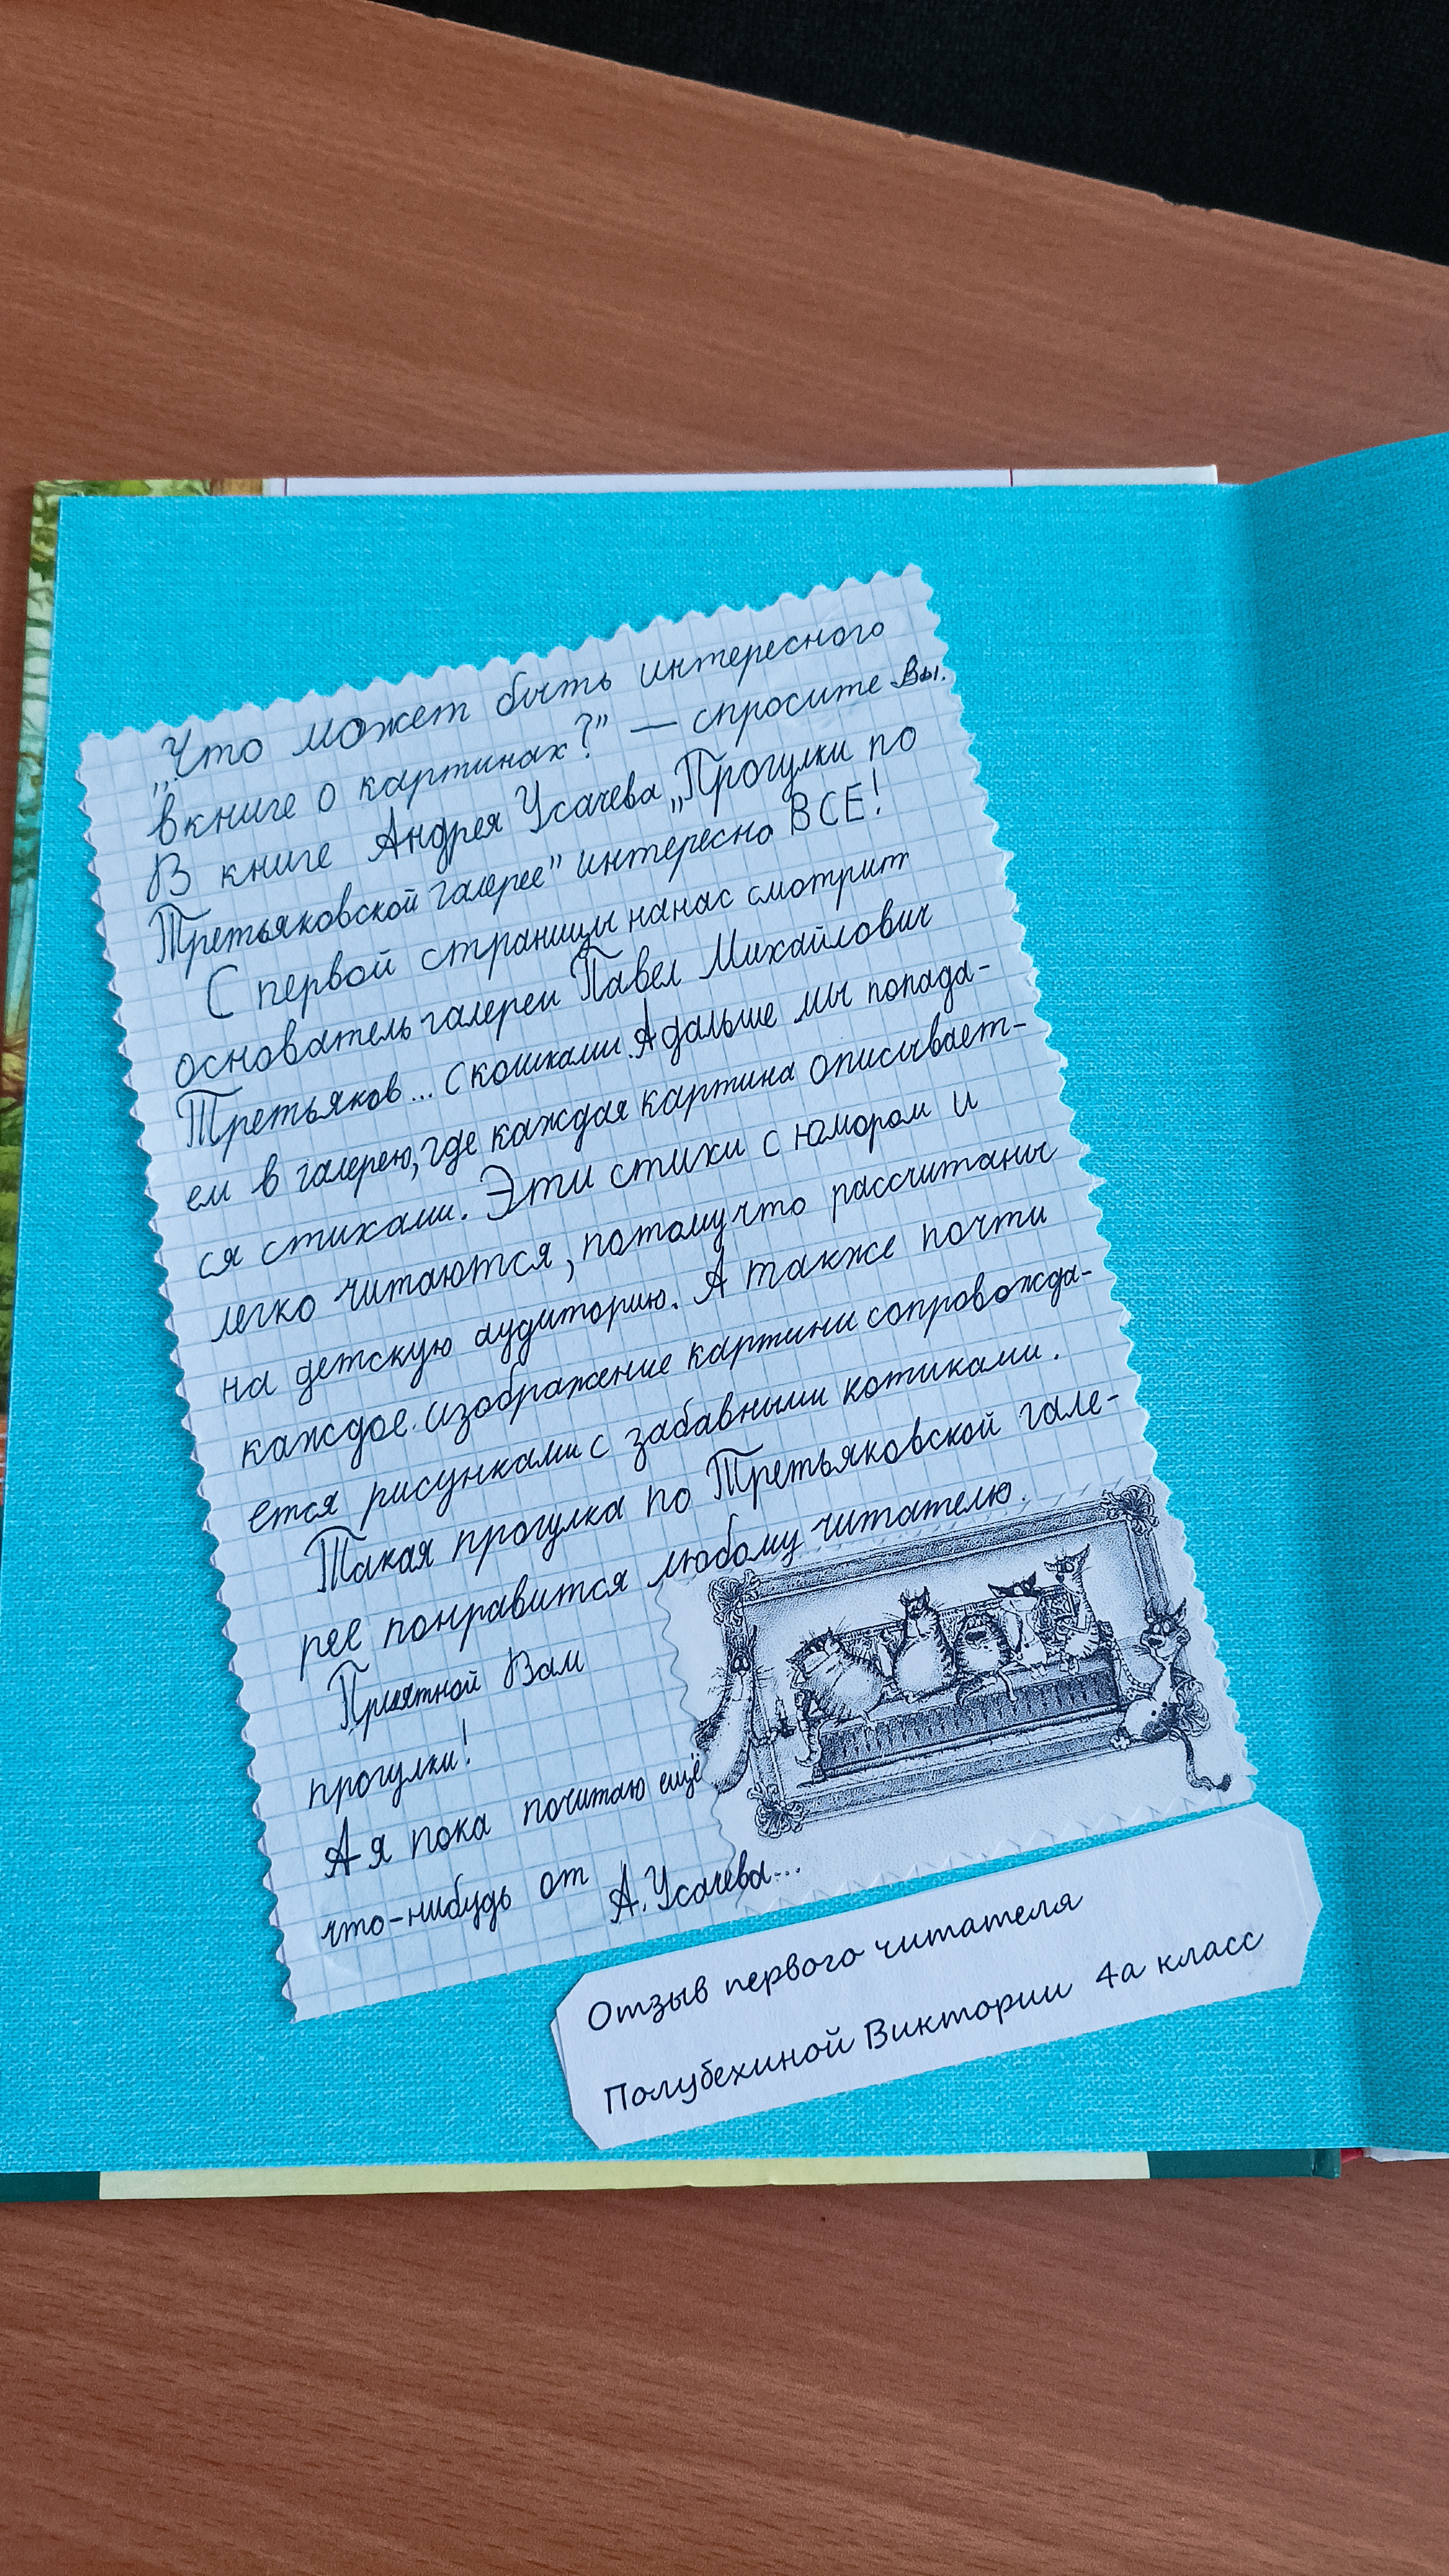 „Что может быть интересного
в книге о картинах?" — спросите Вы.
В книге Андрея Усачева „Прогулки по
Третьяковской галерее" интересно ВСЕ!
С первой страницы на нас смотрит
основатель галереи Павел Михайлович
Третьяков... с кошками. А дальше мы попада-
ем в галерею, где каждая картина описывает-
ся стихами. Эти стихи с юмором и
легко читаются, потому что рассчитаны
на детскую аудиторию. А также почти
каждое изображение картини сопровожда-
ется рисунками с забавными котиками.
Такая прогулка по Третьяковской гале-
рее понравится любому читателю.
Приятной Вам
прогулки!
А я пока почитаю ещё
что-нибудь от А. Усачева...
Отзыв первого читателя
Полубехиной Виктории 4а класс